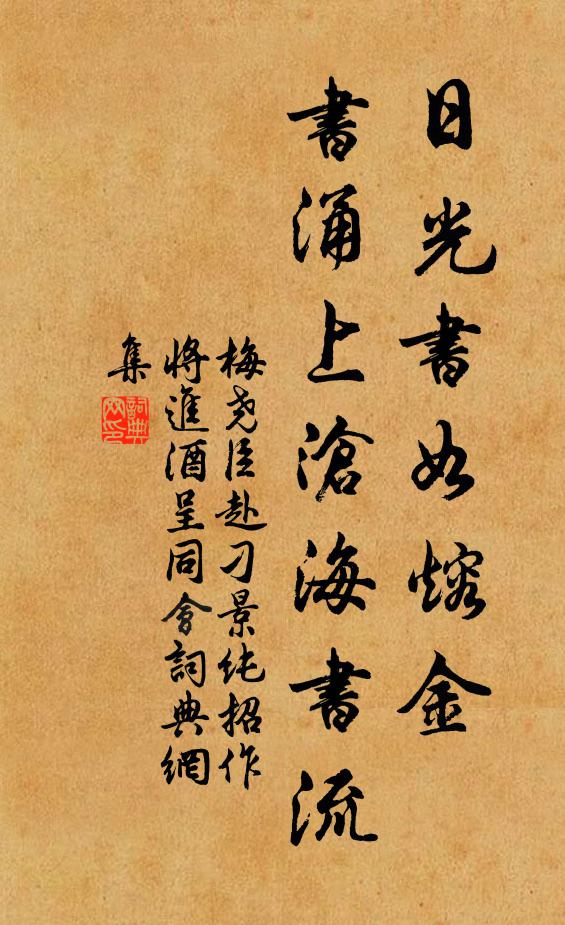 日光書如熔金
書涌上滄海書流
梅堯臣赴刁景純招作
將進酒呈同會詞典網
集
詞典
網印